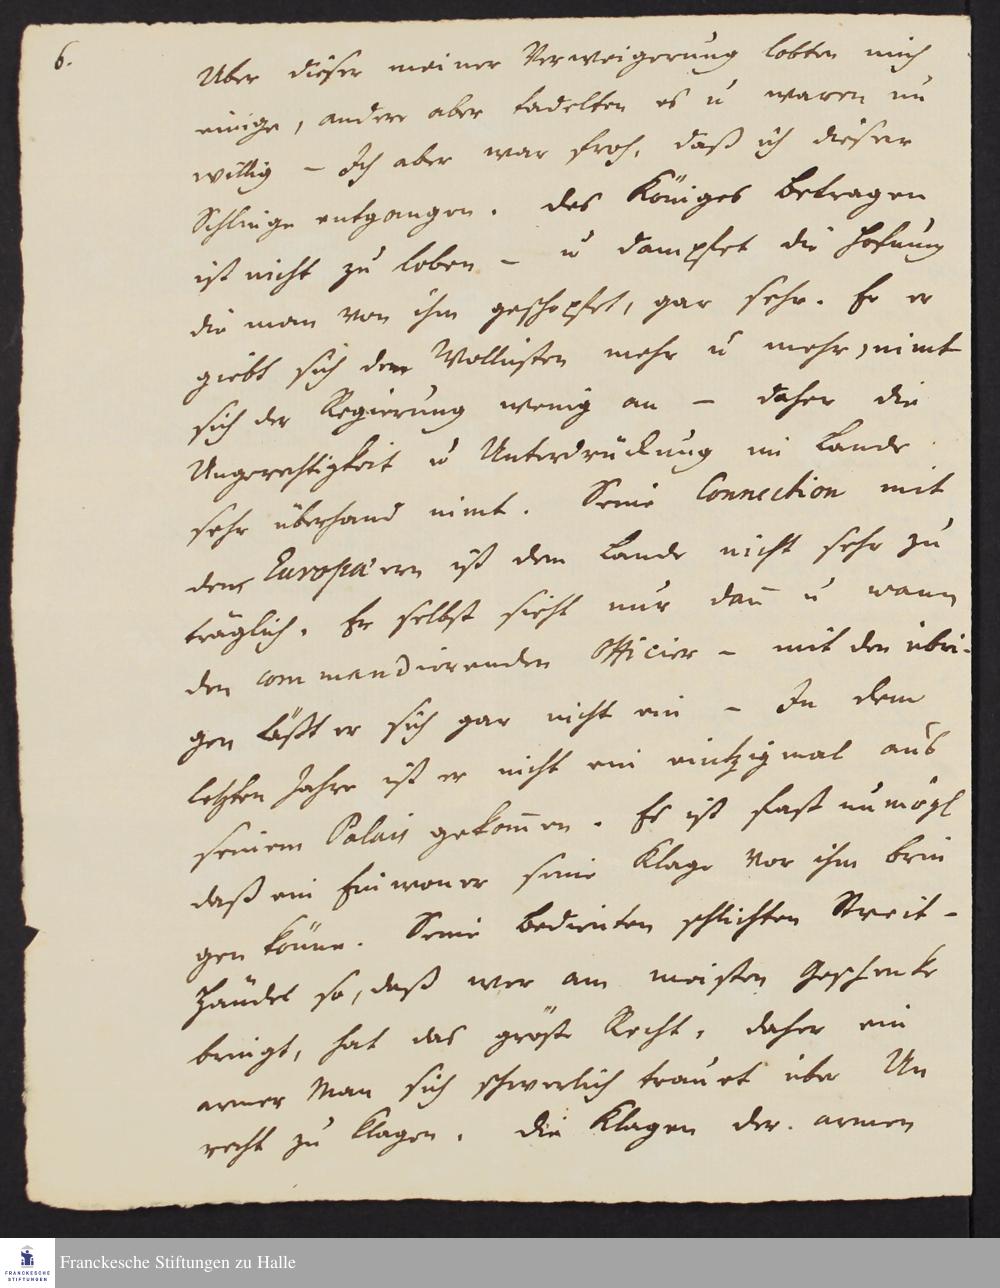 6.
Uber dieser meiner Verweigerung lobten mich
einige, andere aber tadelten es u waren un
willig – Ich aber war froh, daß ich dieser
Schlinge entgangen. Des Königes Betragen
ist nicht zu loben – u dampfet die Hofnung
die man von ihm geschopfet, gar sehr. Er er
giebt sich den Wollüsten mehr u mehr, nimt
sich der Regierung wenig an – daher die
Ungerechtigkeit u Unterdrückung im Lande
sehr überhand nimt. Seine Connection mit
den Europäern ist dem Lande nicht sehr zu
träglich. Er selbst sieht nur dan̄ u wann
den commendierenden Officier – mit den übri-
gen läßt er sich gar nicht ein – In dem
letzten Jahre ist er nicht ein eintzigmal aus
seinem Palais gekom̄en. Es ist fast unmögl
daß ein Einwoner seine Klage vor ihm brin
gen könne. Seine Bedienten schlichten Streit-
Händel so, daß wer am meisten Geschenke
bringt, hat das gröste Recht, daher ein
armer Man sich schwerlich trauet über Un
recht zu klagen. Die Klagen der armen
FRANCKESCHE
STIFTUNGEN
Franckesche Stiftungen zu Halle